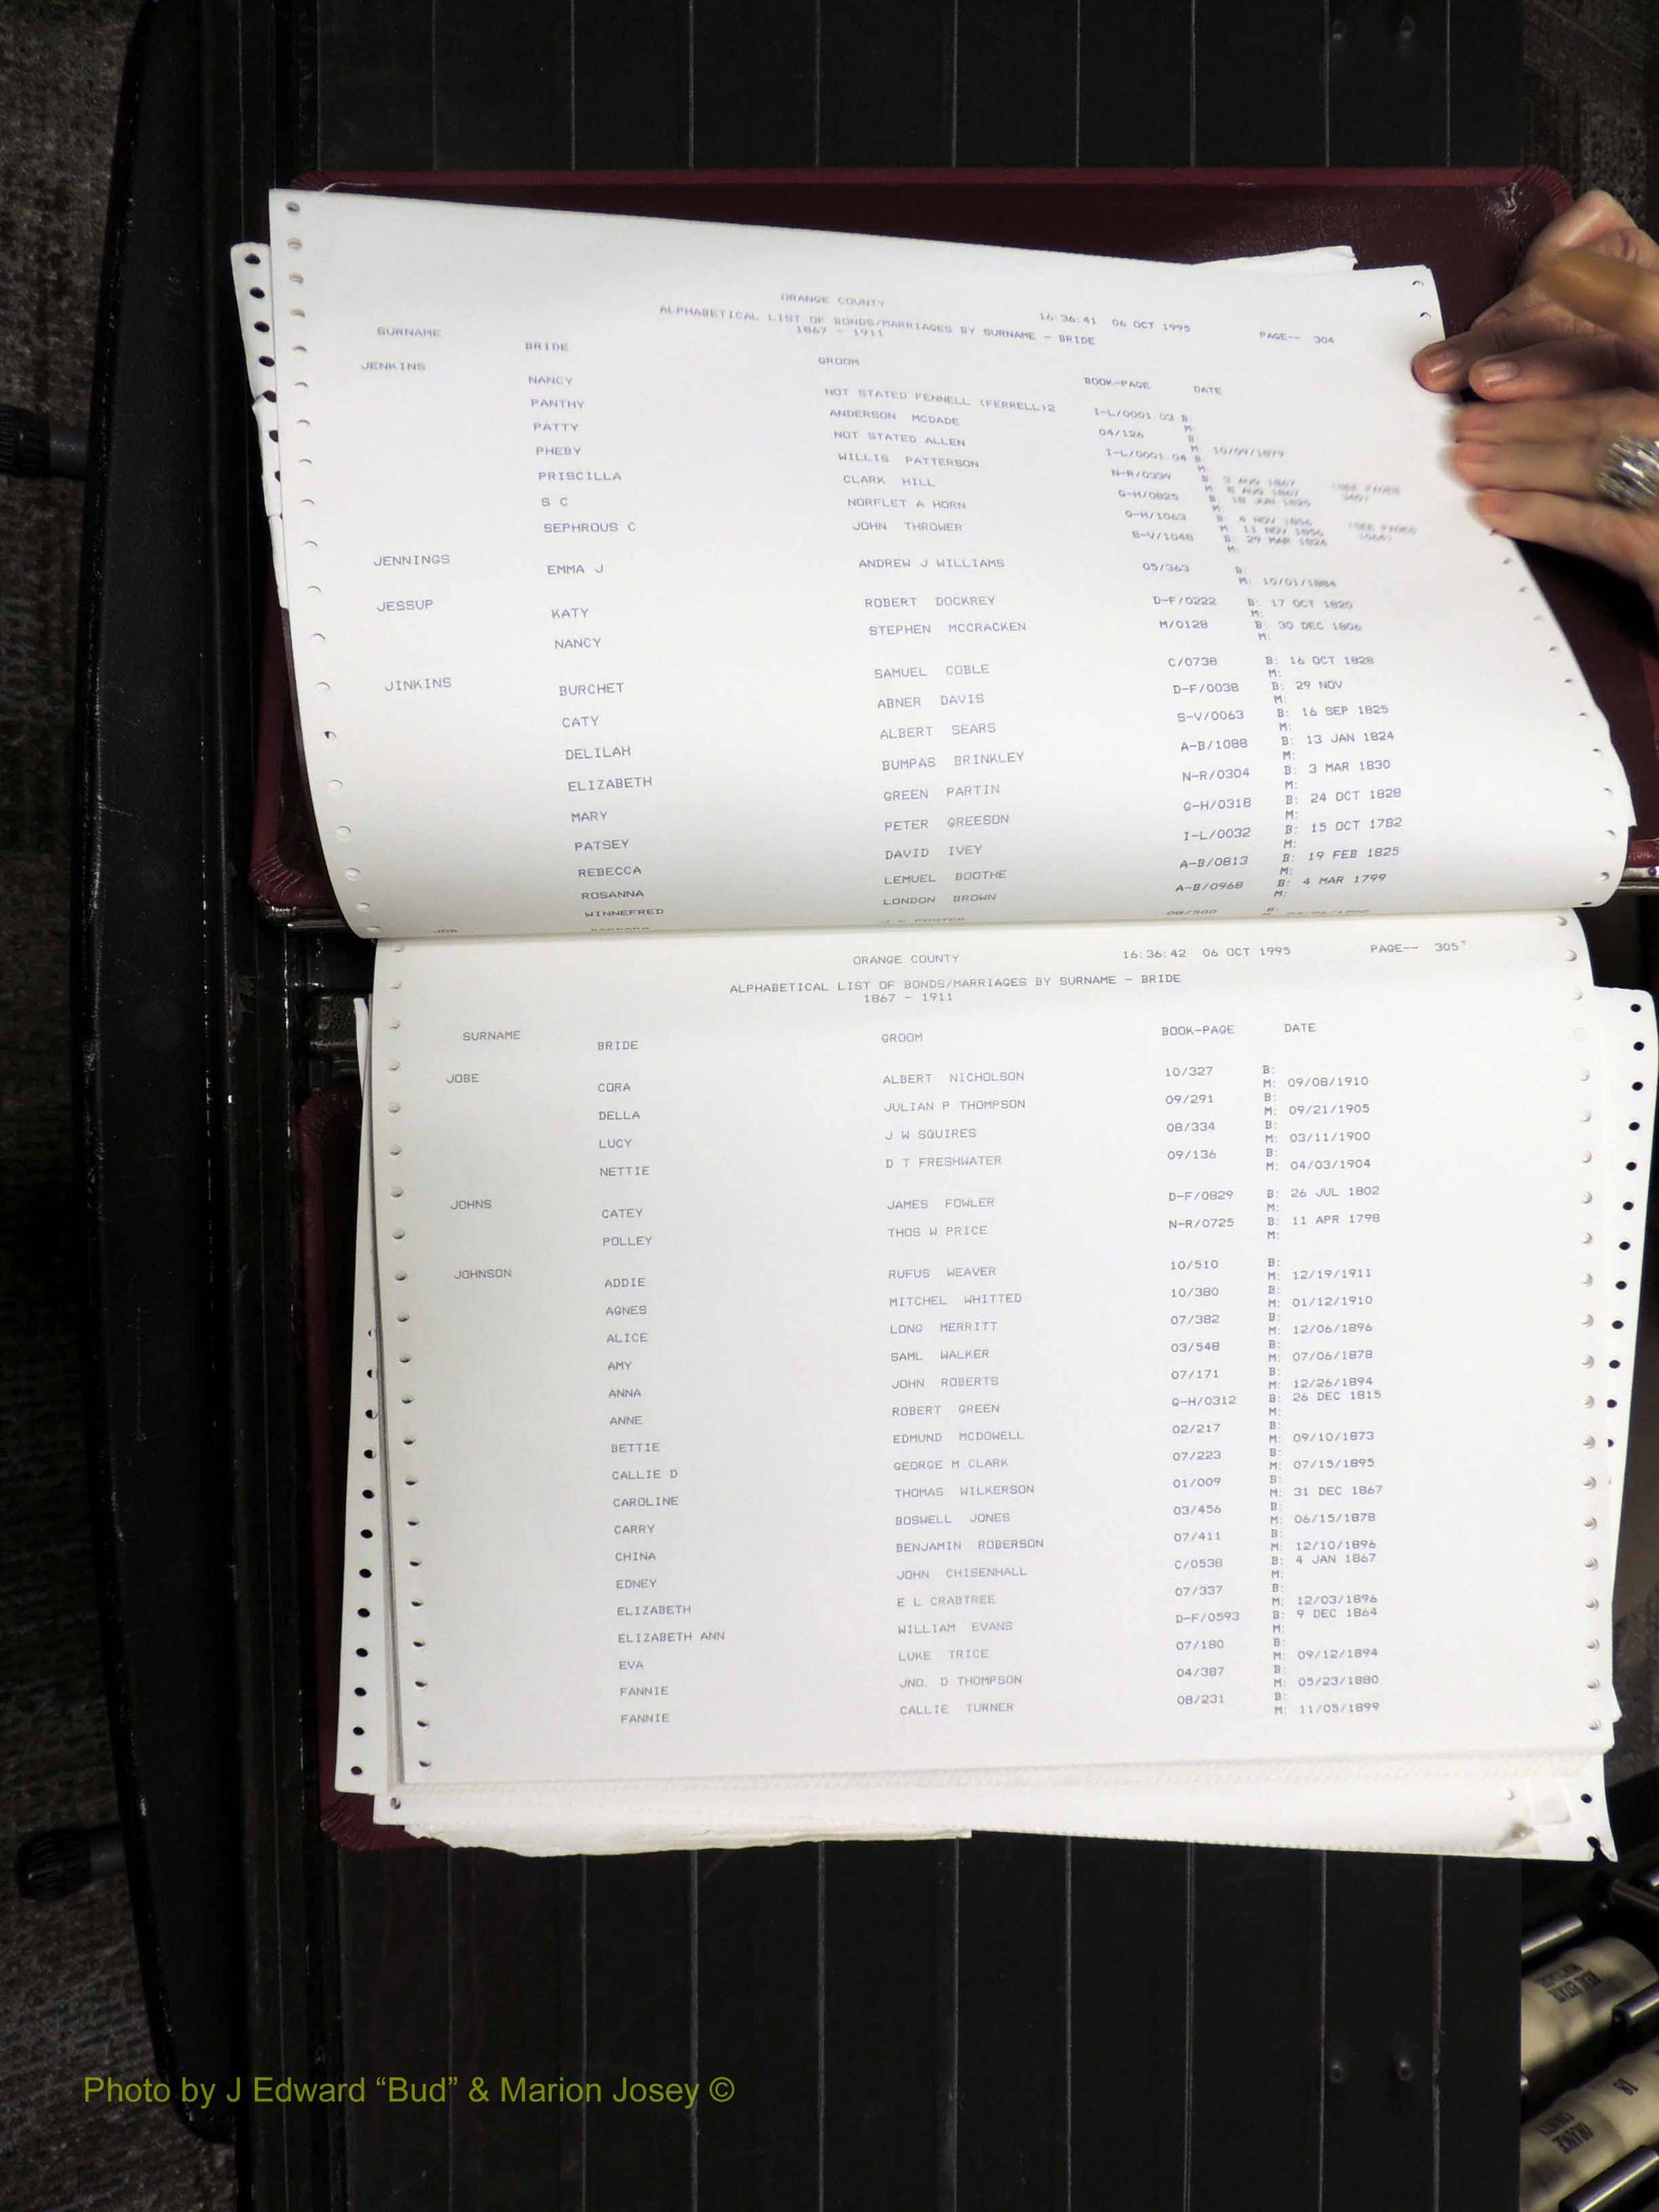 ORANGE COUNTY 16:36:41 06 OCT 1995 PAGE-- 304
ALPHABETICAL LIST OF BONDS/MARRIAGES BY SURNAME - BRIDE
1867 - 1911
SURNAME BRIDE GROOM BOOK-PAGE DATE
JENKINS NANCY NOT STATED PENNELL (FERRELL)2 I-L/0001.03 B:
M:
PANTHY ANDERSON MCDADE 04/126 B:
M: 10/09/1879
PATTY NOT STATED ALLEN I-L/0001.04 B:
M:
PHEBY WILLIS PATTERSON N-R/0339 B: AUG 1867
M: AUG 1867
PRISCILLA CLARK HILL G-H/0825 B: 18 JUN
M:
S C NORFLET A HORN G-H/1063 B: 4 NOV 1856
M: 11 NOV 1856
SEPHROUS C JOHN THROWER S-V/1048 B: 29 MAR 1824
M:
JENNINGS EMMA J ANDREW J WILLIAMS 05/363 B:
M: 10/01/1884
JESSUP KATY ROBERT DOCKREY D-F/0222 B: 17 OCT 1820
M:
NANCY STEPHEN MCCRACKEN M/0128 B: 30 DEC 1806
M:
JINKINS BURCHET SAMUEL COBLE C/0738 B: 16 OCT 1828
M:
CATY ABNER DAVIS D-F/0038 B: 29 NOV
M:
DELILAH ALBERT SEARS S-V/0063 B: 16 SEP 1825
M:
ELIZABETH BUMPAS BRINKLEY A-B/1088 B: 13 JAN 1824
M:
MARY GREEN PARTIN N-R/0304 B: 3 MAR 1830
M:
PATSEY PETER GREESON G-H/0318 B: 24 OCT 1828
M:
REBECCA DAVID IVEY I-L/0032 B: 15 OCT 1782
M:
ROSANNA LEMUEL BOOTHE A-B/0813 B: 19 FEB 1825
M:
WINNEFRED LONDON BROWN A-B/0968 B: 4 MAR 1799
M:
JOB BARBARA 08/500 B:
ORANGE COUNTY 16:36:42 06 OCT 1995 PAGE-- 305
ALPHABETICAL LIST OF BONDS/MARRIAGES BY SURNAME - BRIDE
1867 - 1911
SURNAME BRIDE GROOM BOOK-PAGE DATE
JOBE CORA ALBERT NICHOLSON 10/327 B:
M: 09/08/1910
DELLA JULIAN P THOMPSON 09/291 B:
M: 09/21/1905
LUCY J W SQUIRES 08/334 B:
M: 03/11/1900
NETTIE D T FRESHWATER 09/136 B:
M: 04/03/1904
JOHNS CATEY JAMES FOWLER D-F/0829 B: 26 JUL 1802
M:
POLLEY THOS W PRICE N-R/0725 B: 11 APR 1798
M:
JOHNSON ADDIE RUFUS WEAVER 10/510 B:
M: 12/19/1911
AGNES MITCHEL WHITTED 10/380 B:
M: 01/12/1910
ALICE LONG MERRITT 07/382 B:
M: 12/06/1896
AMY SAML WALKER 03/548 B:
M: 07/06/1878
ANNA JOHN ROBERTS 07/171 B:
M: 12/26/1894
ANNE ROBERT GREEN G-H/0312 B: 26 DEC 1815
M:
BETTIE EDMUND MCDOWELL 02/217 B:
M: 09/10/1873
CALLIE D GEORGE M CLARK 07/223 B:
M: 07/15/1895
CAROLINE THOMAS WILKERSON 01/009 B:
M: 31 DEC 1867
CARRY BOSWELL JONES 03/456 B:
M: 06/15/1878
CHINA BENJAMIN ROBERSON 07/411 B:
M: 12/10/1896
EDNEY JOHN CHISENHALL C/0538 B: 4 JAN 1867
M:
ELIZABETH E L CRABTREE 07/337 B:
M: 12/03/1896
ELIZABETH ANN WILLIAM EVANS D-F/0593 B: 9 DEC 1864
M:
EVA LUKE TRICE 07/180 B:
M: 09/12/1894
FANNIE JNO. D THOMPSON 04/387 B:
M: 05/23/1880
FANNIE CALLIE TURNER 08/231 B:
M: 11/05/1899
Photo by J Edward “Bud” & Marion Josey ©